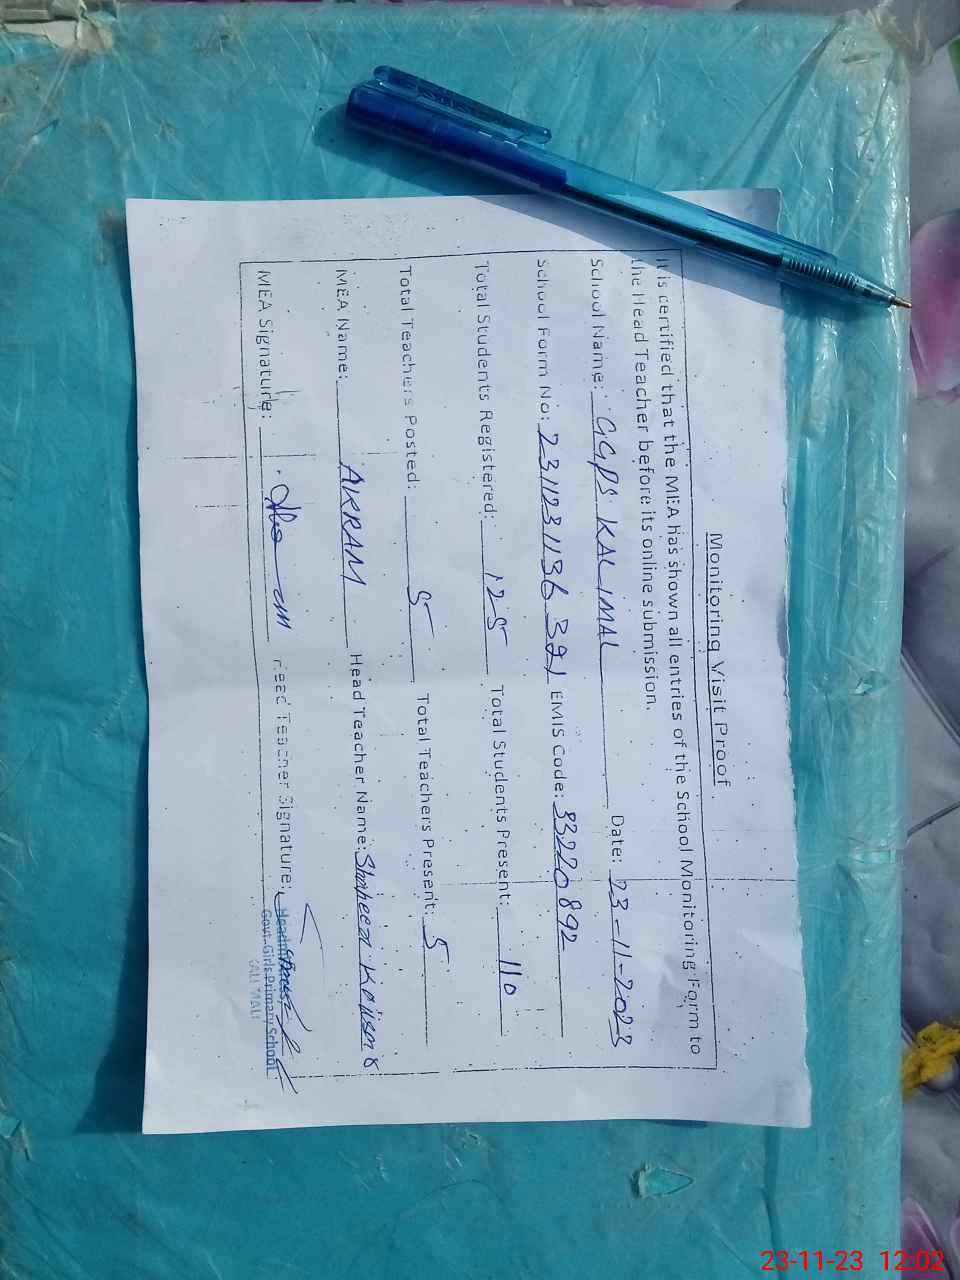 Monitoring Visit Proof
It is certified that the MEA has shown all entries of the School Monitoring Form to
the Head Teacher before its online submission.
School Name: GGPS KALIMAL Date: 23-11-2023
School Form No: 231123 1136 391 EMIS Code: 33220892
Total Students Registered: 125 Total Students Present: 110
Total Teachers Posted: 5 Total Teachers Present: 5
MEA Name: AKRAM Head Teacher Name: Shaheen
MEA Signature: Head Teacher Signature:
Govt. Girls Primary School
KALI MALI
23-11-23 12:02